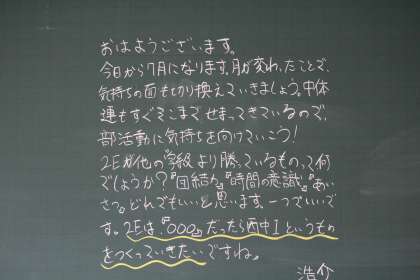 おはようございます。
今日から7月になります。月が変わったことで、
気持ちの面も切り換えていきましょう。中体
連もすぐそこまでせまってきているので、
部活動に気持ちを向けていこう！
2Eが他の学級より勝っているものって何
でしょうか？『団結力』『時間の意識』『あい
さつ』。どれでもいいと思います。一つでいいで
す。2Eは、『○○○』だったら西中1というもの
をつくっていきたいですね。
浩介